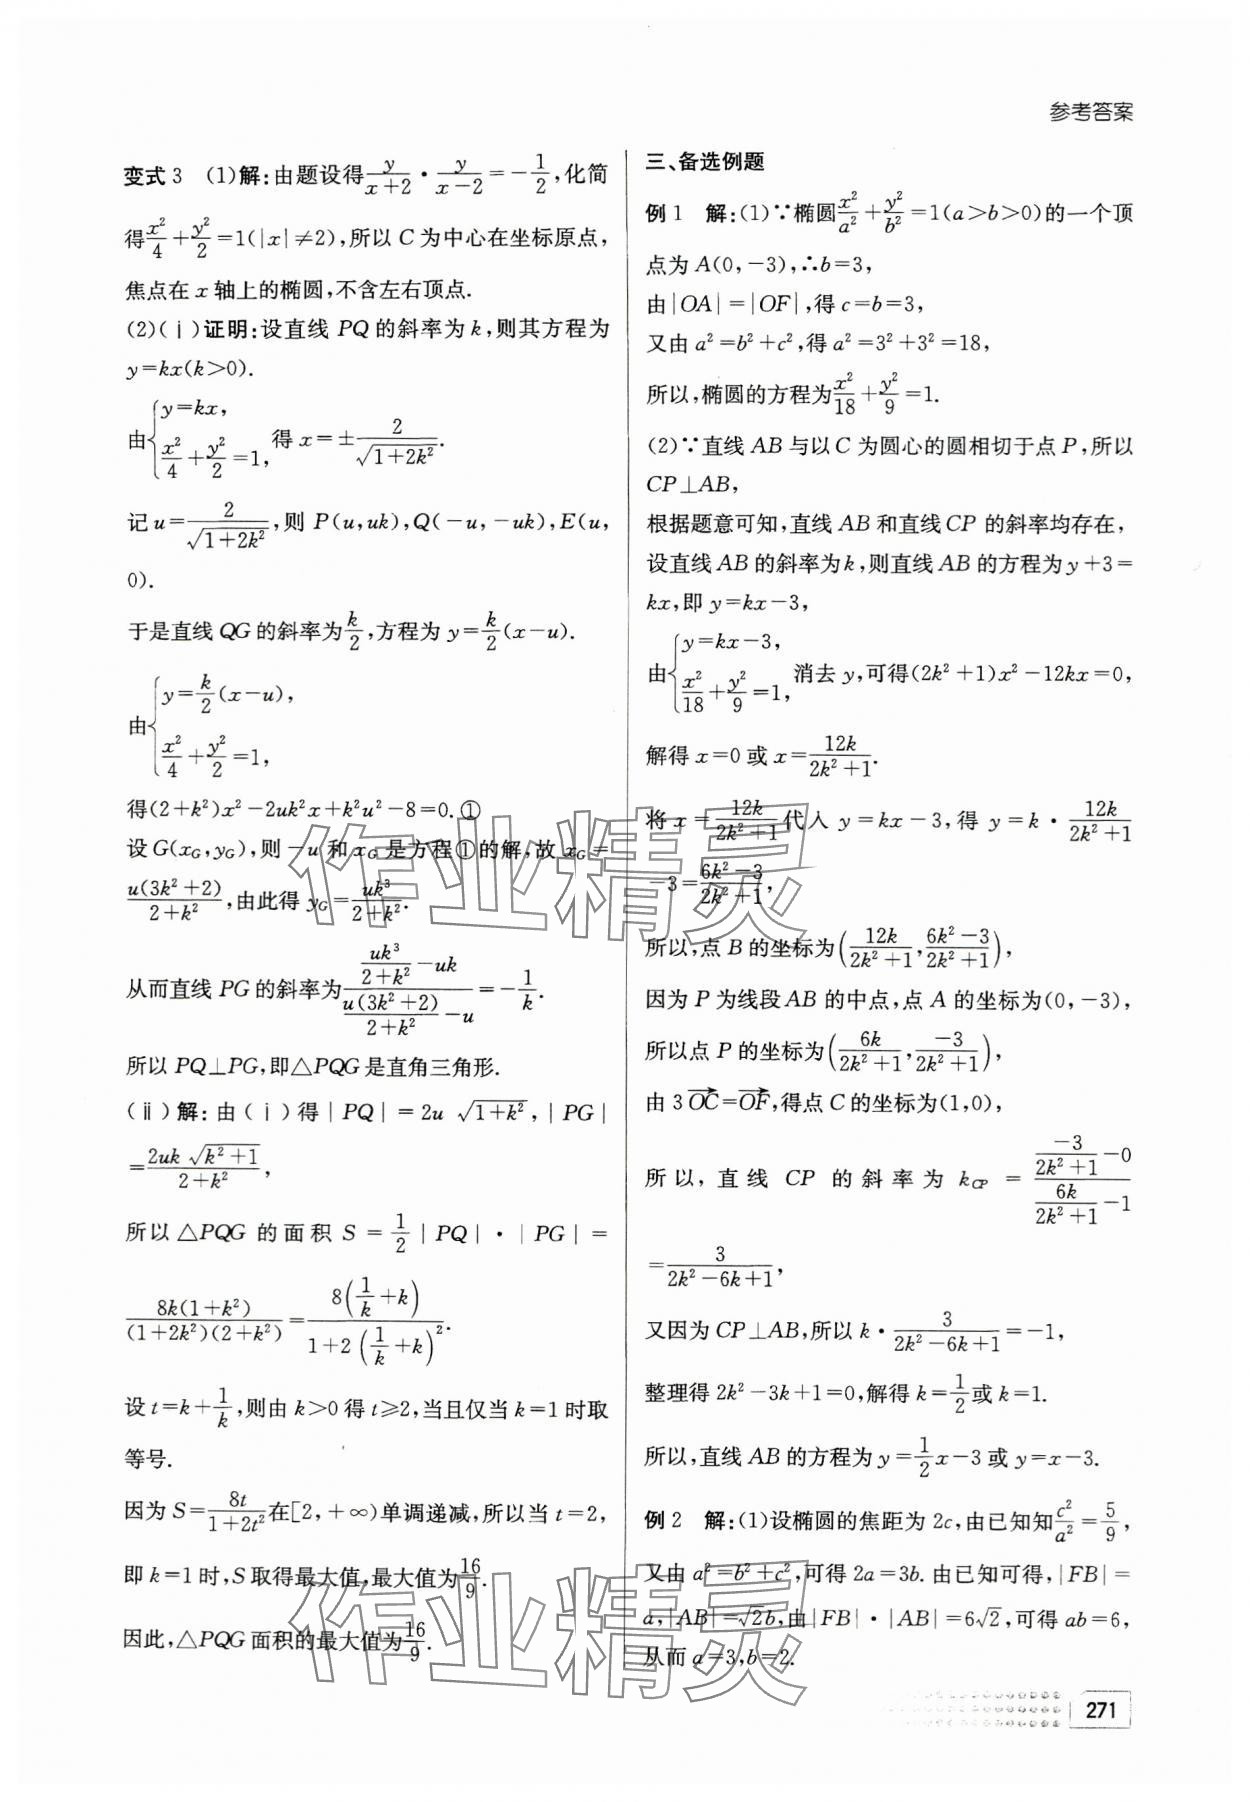 参考答案
变式3 (1)解:由题设得\frac{y}{x+2}·\frac{y}{x-2}=-\frac{1}{2},化简
得\frac{x^2}{4}+\frac{y^2}{2}=1(|x|≠2),所以 C 为中心在坐标原点,
焦点在 x 轴上的椭圆,不含左右顶点.
(2)(ⅰ)证明:设直线 PQ 的斜率为 k,则其方程为
y=kx(k>0).
由{y=kx, \frac{x^2}{4}+\frac{y^2}{2}=1, 得 x=±\frac{2}{\sqrt{1+2k^2}}.
记 u=\frac{2}{\sqrt{1+2k^2}},则 P(u,uk),Q(-u,-uk),E(u,
0).
于是直线 QG 的斜率为\frac{k}{2},方程为 y=\frac{k}{2}(x-u).
由{y=\frac{k}{2}(x-u), \frac{x^2}{4}+\frac{y^2}{2}=1,
得(2+k^2)x^2-2uk^2x+k^2u^2-8=0.①
设 G(x_G,y_G),则-u 和 x_G 是方程①的解,故 x_G=
\frac{u(3k^2+2)}{2+k^2},由此得 y_G=\frac{uk^3}{2+k^2}.
从而直线 PG 的斜率为\frac{\frac{uk^3}{2+k^2}-uk}{\frac{u(3k^2+2)}{2+k^2}-u}=-\frac{1}{k}.
所以 PQ⊥PG,即△PQG 是直角三角形.
(ⅱ)解:由(ⅰ)得|PQ|=2u\sqrt{1+k^2},|PG|
=\frac{2uk\sqrt{k^2+1}}{2+k^2},
所以△PQG 的面积 S=\frac{1}{2}|PQ|·|PG|=
\frac{8k(1+k^2)}{(1+2k^2)(2+k^2)}=\frac{8(\frac{1}{k}+k)}{1+2(\frac{1}{k}+k)^2}.
设 t=k+\frac{1}{k},则由 k>0 得 t≥2,当且仅当 k=1 时取
等号.
因为 S=\frac{8t}{1+2t^2}在[2,+∞)单调递减,所以当 t=2,
即 k=1 时,S 取得最大值,最大值为\frac{16}{9}.
因此,△PQG 面积的最大值为\frac{16}{9}.
三、备选例题
例1 解:(1)∵椭圆\frac{x^2}{a^2}+\frac{y^2}{b^2}=1(a>b>0)的一个顶
点为 A(0,-3),∴b=3,
由|OA|=|OF|,得 c=b=3,
又由 a^2=b^2+c^2,得 a^2=3^2+3^2=18,
所以,椭圆的方程为\frac{x^2}{18}+\frac{y^2}{9}=1.
(2)∵直线 AB 与以 C 为圆心的圆相切于点 P,所以
CP⊥AB,
根据题意可知,直线 AB 和直线 CP 的斜率均存在,
设直线 AB 的斜率为 k,则直线 AB 的方程为 y+3=
kx,即 y=kx-3,
由{y=kx-3, \frac{x^2}{18}+\frac{y^2}{9}=1, 消去 y,可得(2k^2+1)x^2-12kx=0,
解得 x=0 或 x=\frac{12k}{2k^2+1}.
将 x=\frac{12k}{2k^2+1}代入 y=kx-3,得 y=k·\frac{12k}{2k^2+1}
-3=\frac{6k^2-3}{2k^2+1},
所以,点 B 的坐标为(\frac{12k}{2k^2+1},\frac{6k^2-3}{2k^2+1}),
因为 P 为线段 AB 的中点,点 A 的坐标为(0,-3),
所以点 P 的坐标为(\frac{6k}{2k^2+1},\frac{-3}{2k^2+1}),
由 3\overrightarrow{OC}=\overrightarrow{OF},得点 C 的坐标为(1,0),
所以,直线 CP 的斜率为 k_{CP}=\frac{\frac{-3}{2k^2+1}-0}{\frac{6k}{2k^2+1}-1}
=\frac{3}{2k^2-6k+1},
又因为 CP⊥AB,所以 k·\frac{3}{2k^2-6k+1}=-1,
整理得 2k^2-3k+1=0,解得 k=\frac{1}{2}或 k=1.
所以,直线 AB 的方程为 y=\frac{1}{2}x-3 或 y=x-3.
例2 解:(1)设椭圆的焦距为 2c,由已知知\frac{c^2}{a^2}=\frac{5}{9},
又由 a^2=b^2+c^2,可得 2a=3b.由已知可得,|FB|=
a,|AB|=\sqrt{2}b,由|FB|·|AB|=6\sqrt{2},可得 ab=6,
从而 a=3,b=2.
作业精灵
作业精灵
271